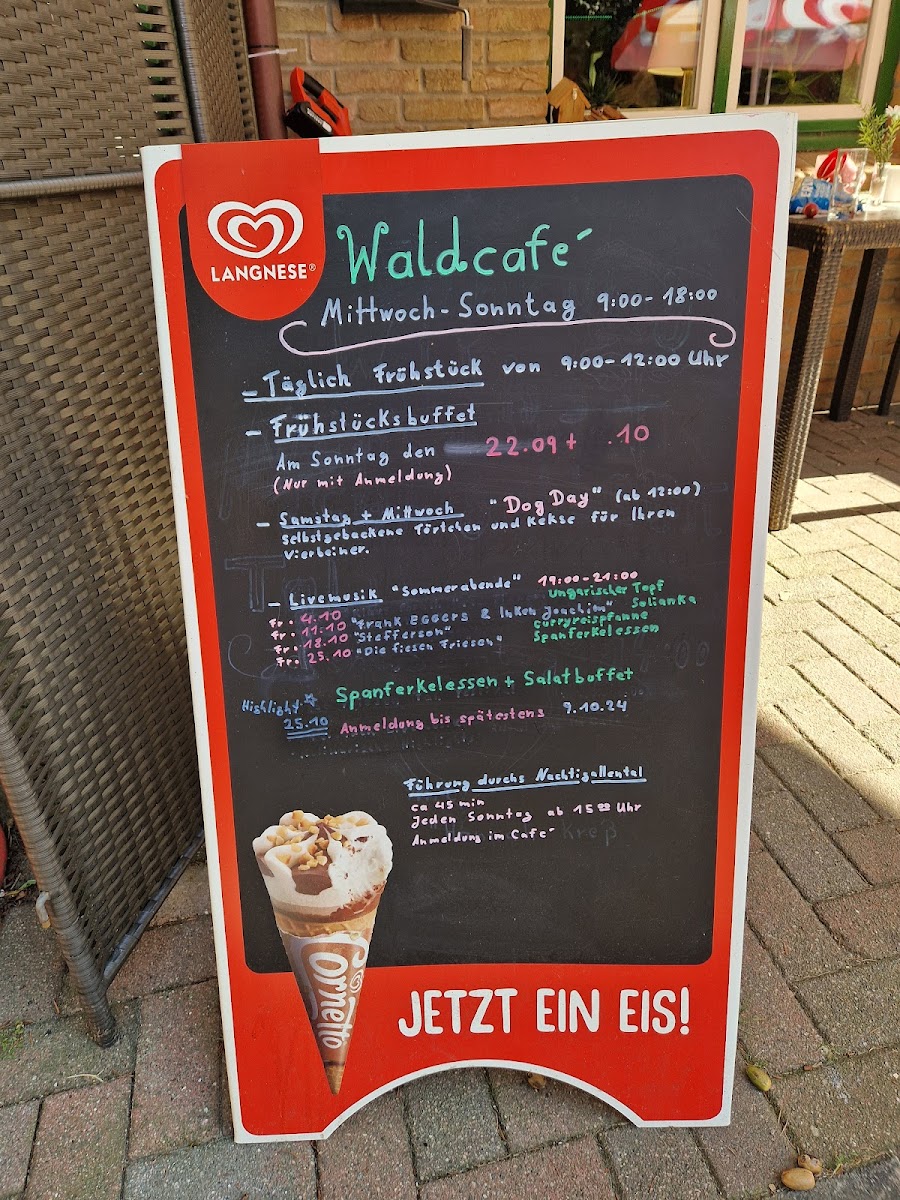 LANGNESE®
Waldcafé
Mittwoch - Sonntag 9:00 - 18:00
- Täglich Frühstück von 9:00 - 12:00 Uhr
- Frühstücksbuffet
Am Sonntag den 22.09 + .10
(Nur mit Anmeldung)
- Samstag + Mittwoch "Dog Day" (ab 12:00)
selbstgebackene Törtchen und Kekse für Ihren
Vierbeiner.
- Livemusik "Sommerabende" 19:00 - 21:00
Fr. 4.10 Ungarischer Topf
Fr. 11.10 "Frank Eggers & Inken Joachim" Solianka
Fr. 18.10 "Stefferson" Curryreispfanne
Fr. 25.10 "Die fiesen Friesen" Spanferkelessen
Highlight Spanferkelessen + Salatbuffet
25.10 Anmeldung bis spätestens 9.10.24
Führung durchs Nachtigallental
ca 45 min
Jeden Sonntag ab 15 00 Uhr
Anmeldung im Café
Cornetto
JETZT EIN EIS!